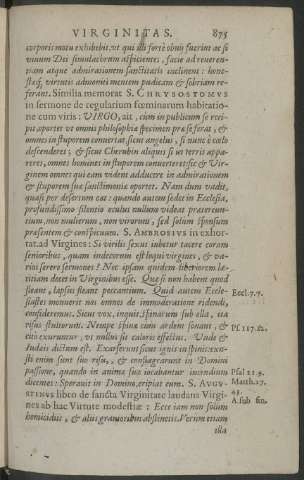 VIRGINITAS. 875
corporis motu exhibebit, ut qui illi fortè obvij fuerint ac si
vivum Dei simulacrum aspicientes, facie ad reveren-
tiam atque admirationem sanctitatis inclinent: hone-
stæq́; virtutis admoniti mentem pudicam & sobriam re-
ferant. Similia memorat S. CHRYSOSTOMVS
in sermone de regularium fœminarum habitatio-
ne cum viris: VIRGO, ait, cum in publicum se reci-
pit, oportet ut omnis philosophiæ specimen præ se ferat, &
omnes in stuporem convertat, sicut angelus, si nunc è cœlo
descenderet; & sicut Cherubin aliquis si in terris appa-
reret, omnes homines in stuporem converteret: sic & Vir-
ginem omnes qui eam vident adducere in admirationem
& stuporem suæ sanctimoniæ oportet. Nam dum vadit,
quasi per desertum eat: quando autem sedet in Ecclesia,
profundissimo silentio oculus nullum videat prætereun-
tium, non mulierum, non virorum, sed solum sponsum
præsentem & conspicuum. S. AMBROSIVS in exhor-
tat. ad Virgines: Si virilis sexui iubetur tacere coram
senioribus, quam indecorum est loqui virgines, & va-
rios serere sermones? Nec ipsam quidem liberiorem læ-
titiam decet in Virginibus esse. Quæ si non habent quod
fleant, lapsus fleant peccantium. Quid autem Eccle-
siastes monuerit nos omnes de immoderatione ridendi,
consideremus. Sicut vox, inquit, spinarum sub olla, ita
risus stultorum. Nempe spinæ cum ardent sonant, &
cito exuruntur, vt nullus sit caloris effectus. Vnde &
Iudæis dictum est. Exarserunt sicut ignis in spinis: exu-
sti enim sunt suo risu, & conflagraverunt in Domini
passione, quando in anima sua iocabantur incendium
dicentes: Speravit in Domino, eripiat eum. S. AVGV-
STINVS libro de sancta Virginitate laudans Virgi-
nes ab hac Virtute modestiæ: Ecce iam non solum
homicidiis, & aliis gravioribus abstinetis. Verum etiam
illa
Eccl. 7.7.
Ps. 117.12.
Psal 21.9.
Matth. 27.
43.
A sub fin.